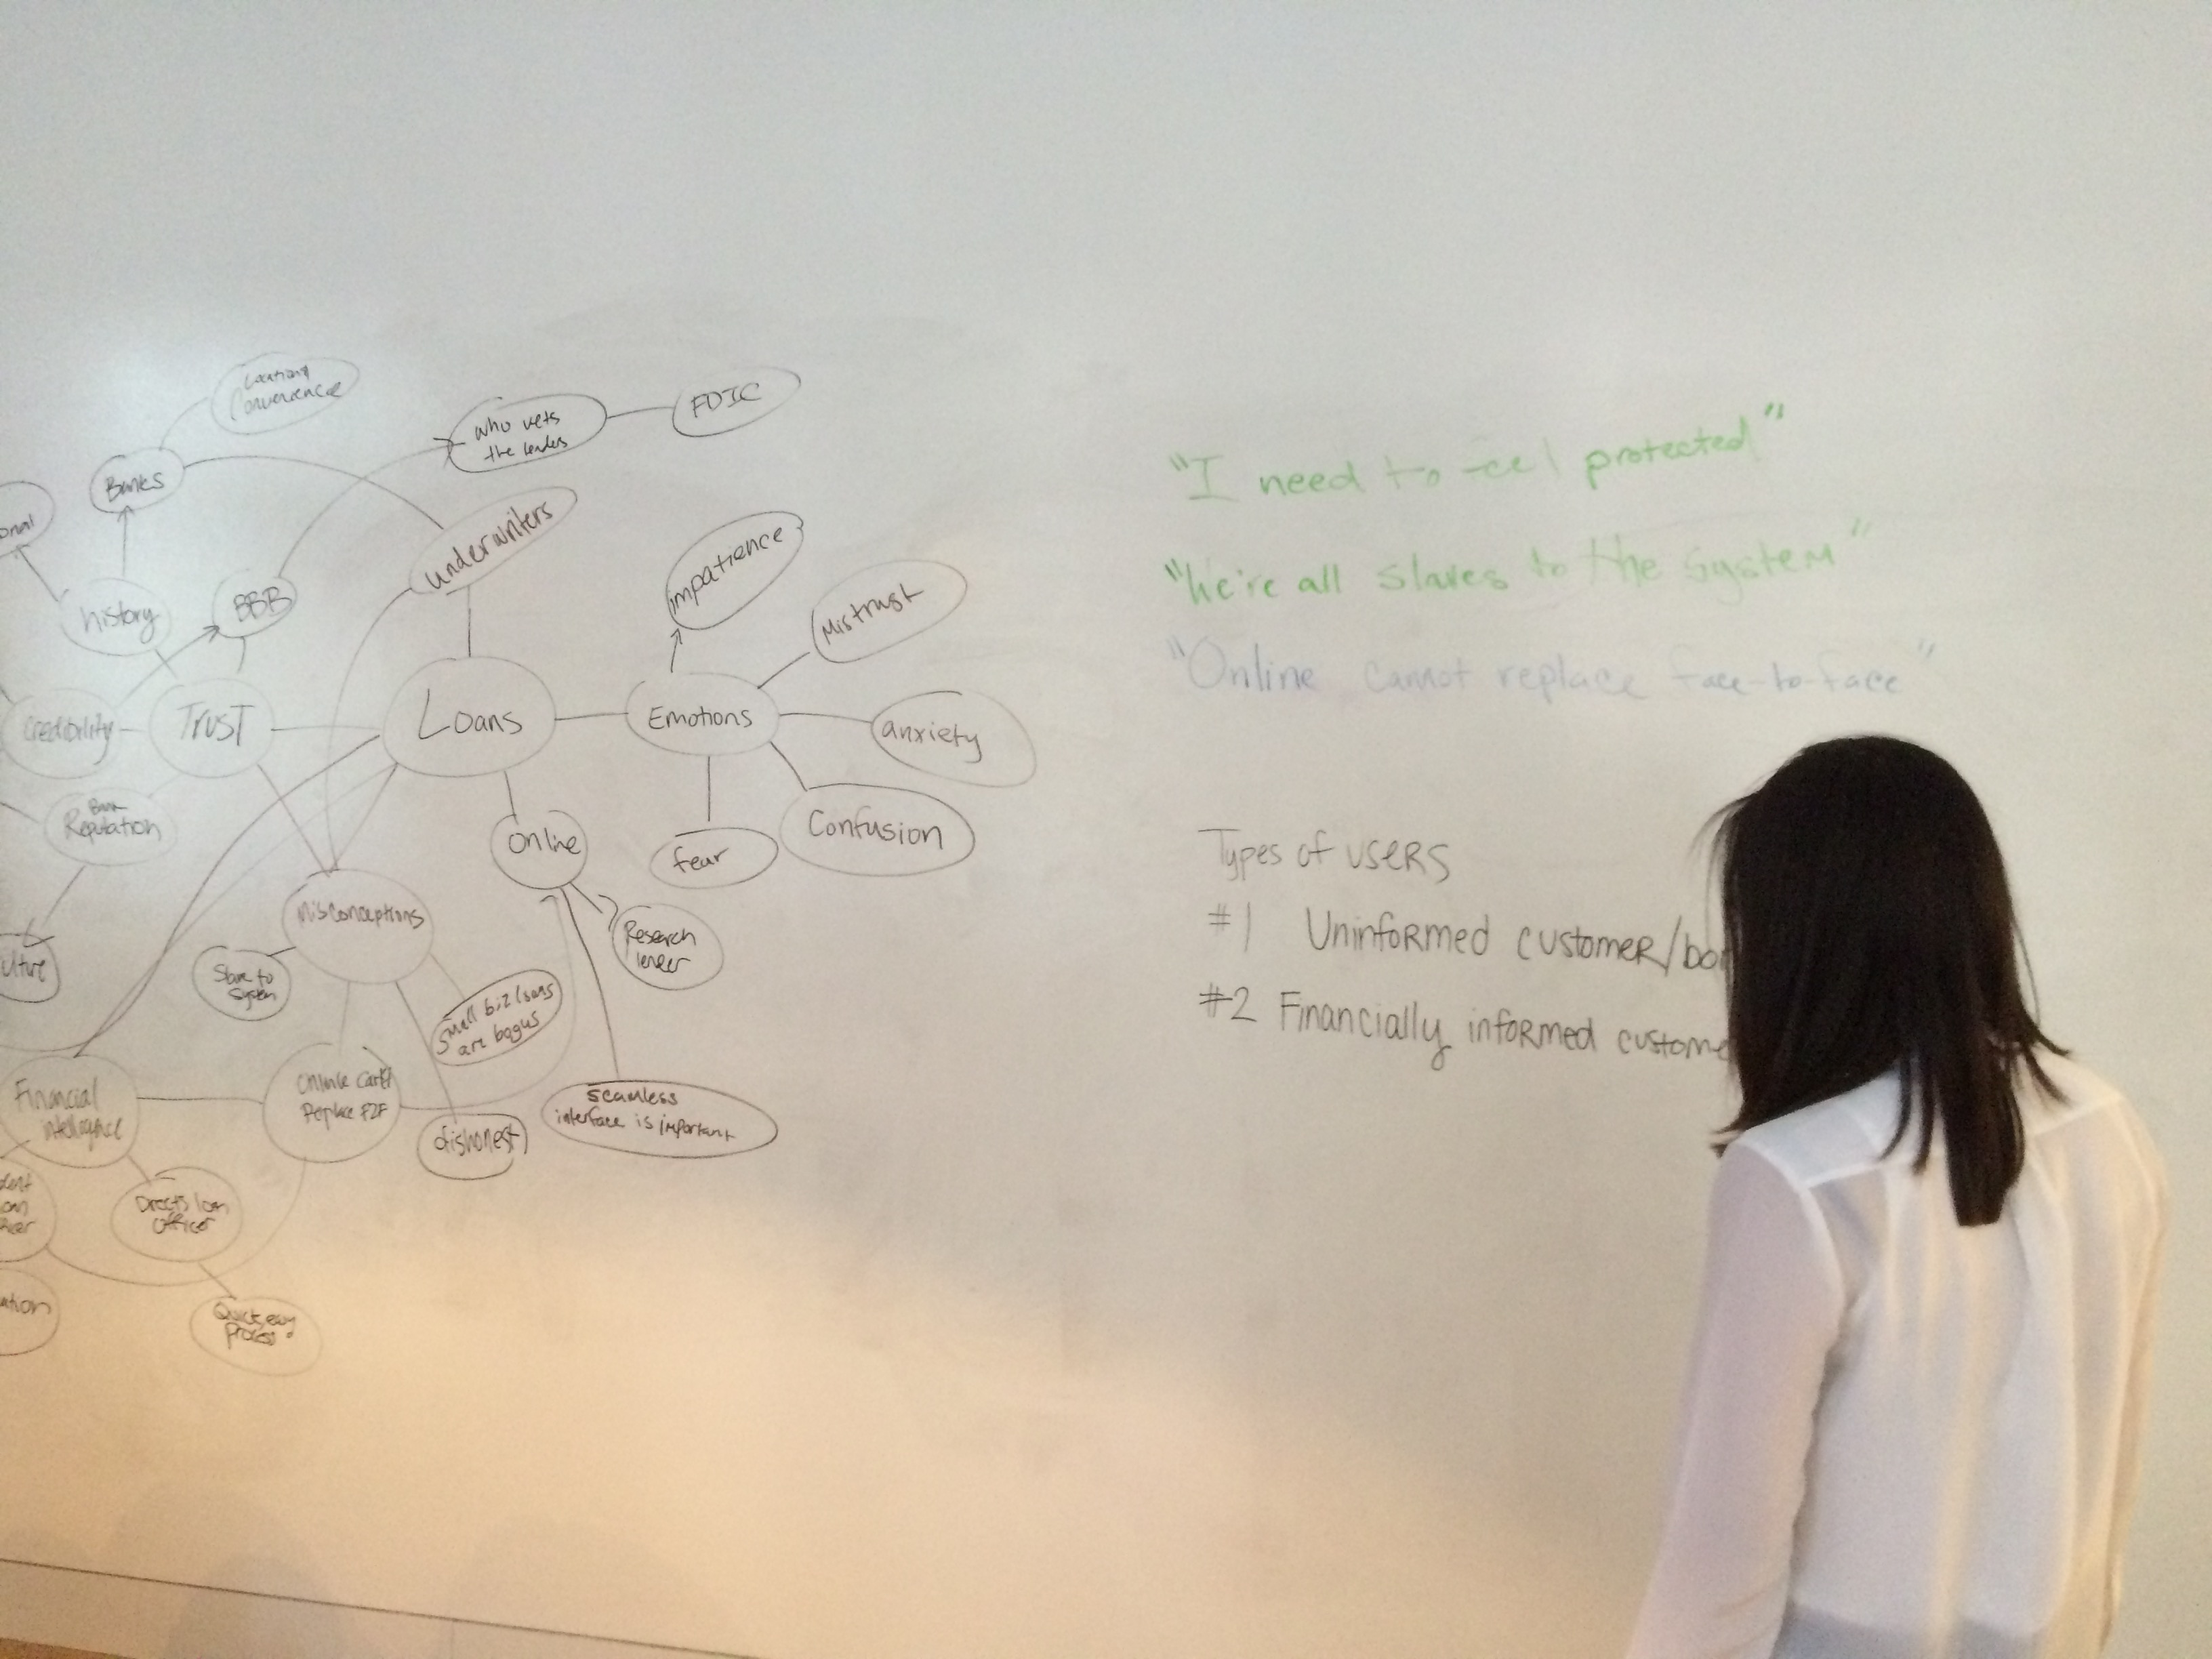 Location/
Convenience
who vets
the lenders
FDIC
Banks
onal
underwriters
impatience
history
BBB
Mistrust
Credibility
TRUST
Loans
Emotions
anxiety
Bank
Reputation
Online
fear
Confusion
Misconceptions
ulture
Slave to
System
Research
lender
Small biz loans
are bogus
Financial
intelligence
Online can't
Replace F2F
dishonest
seamless
interface is important
Directs loan
officer
Quick, easy
process
ation
"I need to feel protected"
"We're all slaves to the system"
"Online cannot replace face-to-face"
Types of users
#1 Uninformed customer/bo
#2 Financially informed custome